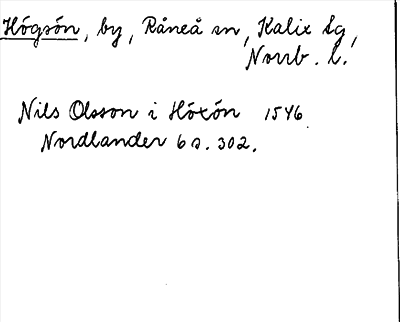 Högsön, by, Råneå sn, Kalix tg,
Norrb. l.
Nils Olsson i Höxön 1546.
Nordlander 6 s. 302.